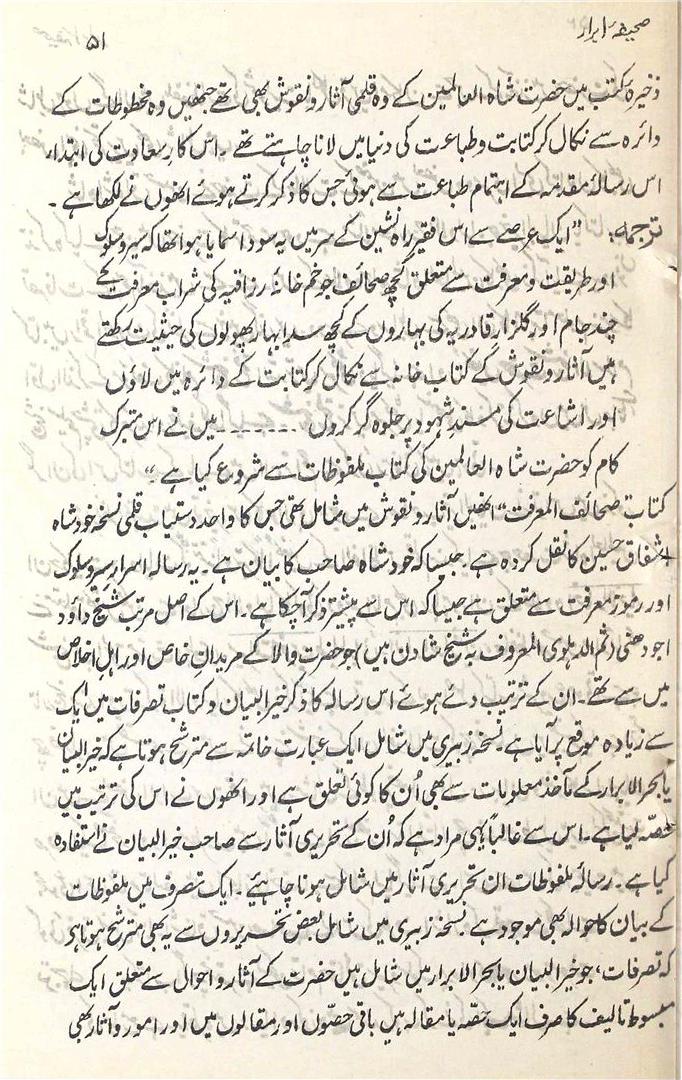 صحیفۂ ابرار
۵۱
ذخیرۂ کتب میں حضرت شاہ العالمین کے وہ قلمی آثار و نقوش بھی تھے جنھیں وہ مخطوطات کے
دائرہ سے نکال کر کتابت و طباعت کی دنیا میں لانا چاہتے تھے ۔ اس کارِ سعادت کی ابتداء
اس رسالۂ مقدمہ کے اہتمام طباعت سے ہوئی جس کا ذکر کرتے ہوئے انھوں نے لکھا ہے ۔
ترجمہ: "ایک عرصے سے اس فقیر راہ نشین کے سر میں یہ سودا سمایا ہوا تھا کہ سیر و سلوک
اور طریقت و معرفت سے متعلق کچھ صحائف جو خم خانۂ رزاقیہ کی شراب معرفت کے
چند جام اور گلزار قادریہ کی بہاروں کے کچھ سدا بہار پھولوں کی حیثیت رکھتے
ہیں آثار و نقوش کے کتاب خانہ سے نکال کر کتابت کے دائرہ میں لاؤں
اور اشاعت کی مسندِ شہود پر جلوہ گر کروں ۔۔۔۔۔۔۔ میں نے اس متبرک
کام کو حضرت شاہ العالمین کی کتاب ملفوظات سے شروع کیا ہے ۔"
کتاب صحائف المعرفت" انھیں آثار و نقوش میں شامل تھی جس کا واحد دستیاب قلمی نسخہ خود شاہ
اشفاق حسین کا نقل کردہ ہے ۔ جیسا کہ خود شاہ صاحب کا بیان ہے ۔ یہ رسالہ اسرارِ سیر و سلوک
اور رموز معرفت سے متعلق ہے جیسا کہ اس سے پیشتر ذکر آ چکا ہے ۔ اس کے اصل مرتب شیخ داؤد
اجودھنی (ثم الدہلوی المعروف بہ شیخ شادن ہیں) جو حضرت والا کے مریدانِ خاص اور اہلِ اخلاص
میں سے تھے ۔ ان کے ترتیب دئے ہوئے اس رسالہ کا ذکر خیر البیان و کتاب تصرفات میں ایک
سے زیادہ موقع پر آیا ہے ۔ نسخہ زبیری میں شامل ایک عبارت خاتمہ سے مترشح ہوتا ہے کہ خیر البیان
یا بحر الابرار کے مآخذ معلومات سے بھی اُن کا کوئی تعلق ہے اور انھوں نے اس کی ترتیب میں
حصّہ لیا ہے ۔ اس سے غالباً یہی مراد ہے کہ اُن کے تحریری آثار سے صاحب خیر البیان نے استفادہ
کیا ہے ۔ رسالۂ ملفوظات ان تحریری آثار میں شامل ہونا چاہئیے ۔ ایک تصرف میں ملفوظات
کے بیان کا حوالہ بھی موجود ہے ۔ نسخہ زبیری میں شامل بعض تحریروں سے یہ بھی مترشح ہوتا ہے
کہ تصرفات، جو خیر البیان یا بحر الابرار میں شامل ہیں حضرت کے آثار و احوال سے متعلق ایک
مبسوط تالیف کا صرف ایک حصّہ یا مقالہ ہیں باقی حصّوں اور مقالوں میں اور امور و آثار بھی